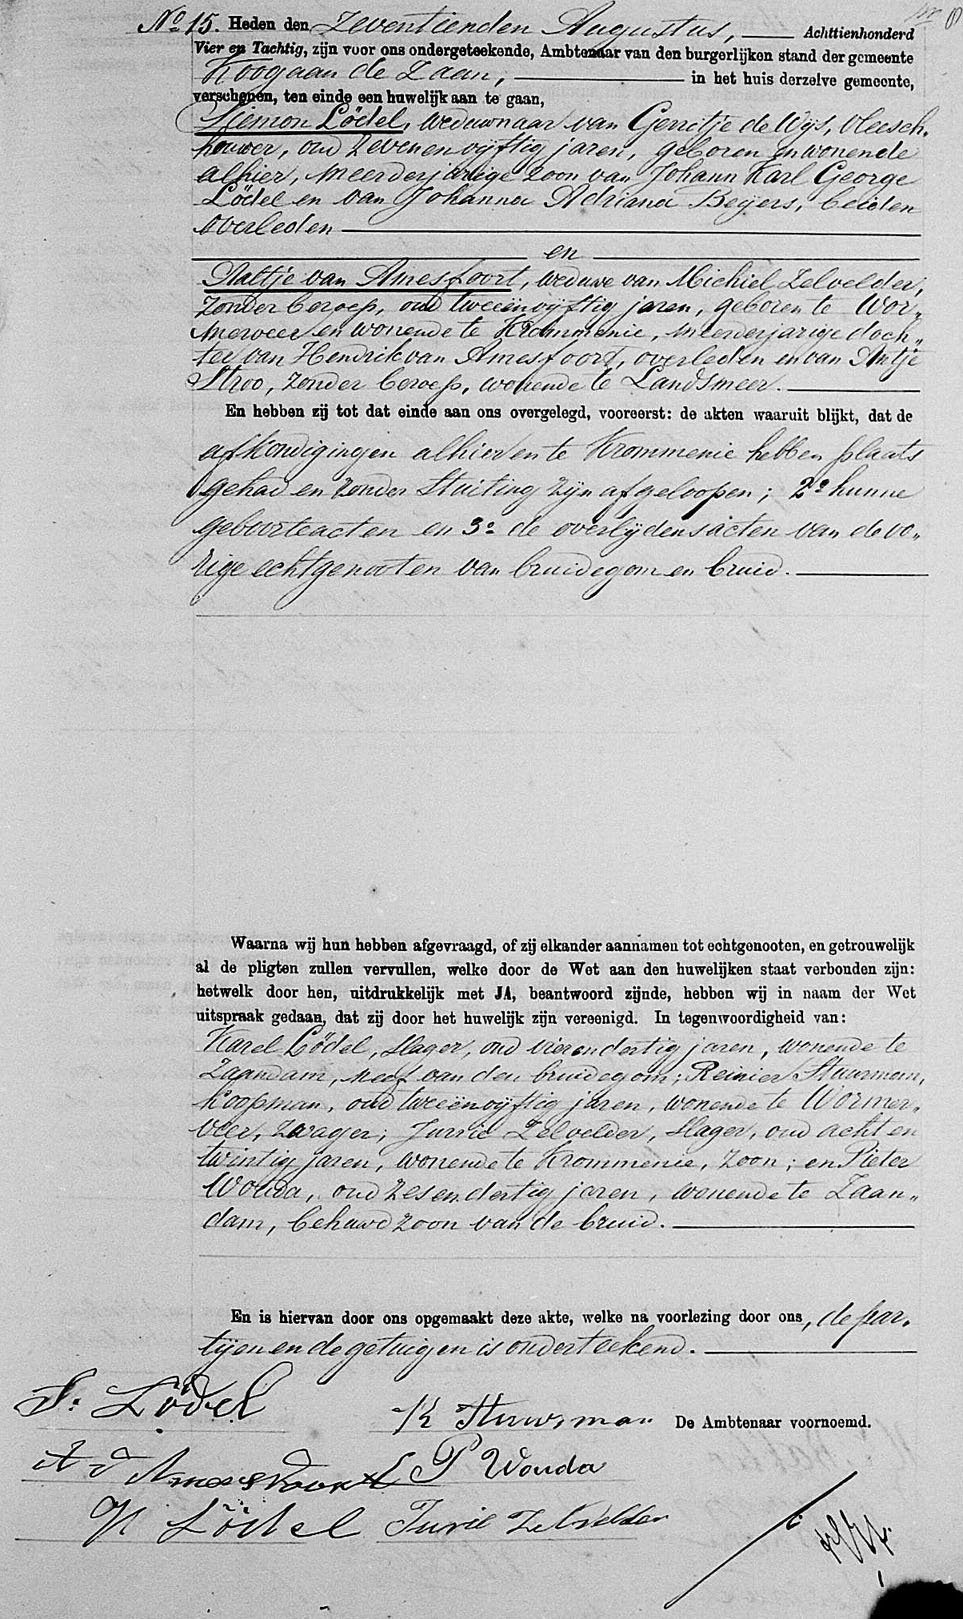 No 15. Heden den Zeventienden Augustus, Achttienhonderd
Vier en Tachtig, zijn voor ons ondergeteekende, Ambtenaar van den burgerlijken stand der gemeente
Koog aan de Zaan, in het huis derzelve gemeente,
verschenen, ten einde een huwelijk aan te gaan,
Siemon Lödel, weduwnaar van Gerritje de Wijs, vleesch„
houwer, oud zevenenvijftig jaren, geboren en wonende
alhier, meerderjarige zoon van Johann Karl George
Lödel en van Johanna Adriana Beijers, beiden
overleden
en
Aaltje van Amesfoort, weduwe van Michiel Zelvelder,
zonder beroep, oud tweeënvijftig jaren, geboren te Wor„
merveer en wonende te Krommenie, meerderjarige doch„
ter van Hendrik van Amesfoort, overleden en van Antje
Stroo, zonder beroep, wonende te Landsmeer.
En hebben zij tot dat einde aan ons overgelegd, vooreerst: de akten waaruit blijkt, dat de
afkondigingen alhier en te Krommenie hebben plaats
gehad en zonder stuiting zijn afgeloopen; 2o hunne
geboorteacten en 3o de overlijdensacten van de vo„
rige echtgenooten van bruidegom en bruid.
Waarna wij hun hebben afgevraagd, of zij elkander aannamen tot echtgenooten, en getrouwelijk
al de pligten zullen vervullen, welke door de Wet aan den huwelijken staat verbonden zijn:
hetwelk door hen, uitdrukkelijk met JA, beantwoord zijnde, hebben wij in naam der Wet
uitspraak gedaan, dat zij door het huwelijk zijn vereenigd. In tegenwoordigheid van:
Karel Lödel, slager, oud vierendertig jaren, wonende te
Zaandam, neef van den bruidegom; Reinier Stuurman,
koopman, oud tweeënvijftig jaren, wonende te Wormer„
veer, zwager; Jurrie Zelvelder, slager, oud acht en
twintig jaren, wonende te Krommenie, zoon; en Pieter
Wouda, oud zesendertig jaren, wonende te Zaan„
dam, behuwdzoon van de bruid.
En is hiervan door ons opgemaakt deze akte, welke na voorlezing door ons, de par„
tijen en de getuigen is onderteekend.
S. Lödel
R Stuurman De Ambtenaar voornoemd.
A v Amesvoort
P Wouda
K Lödel
Jurrie Zelvelder